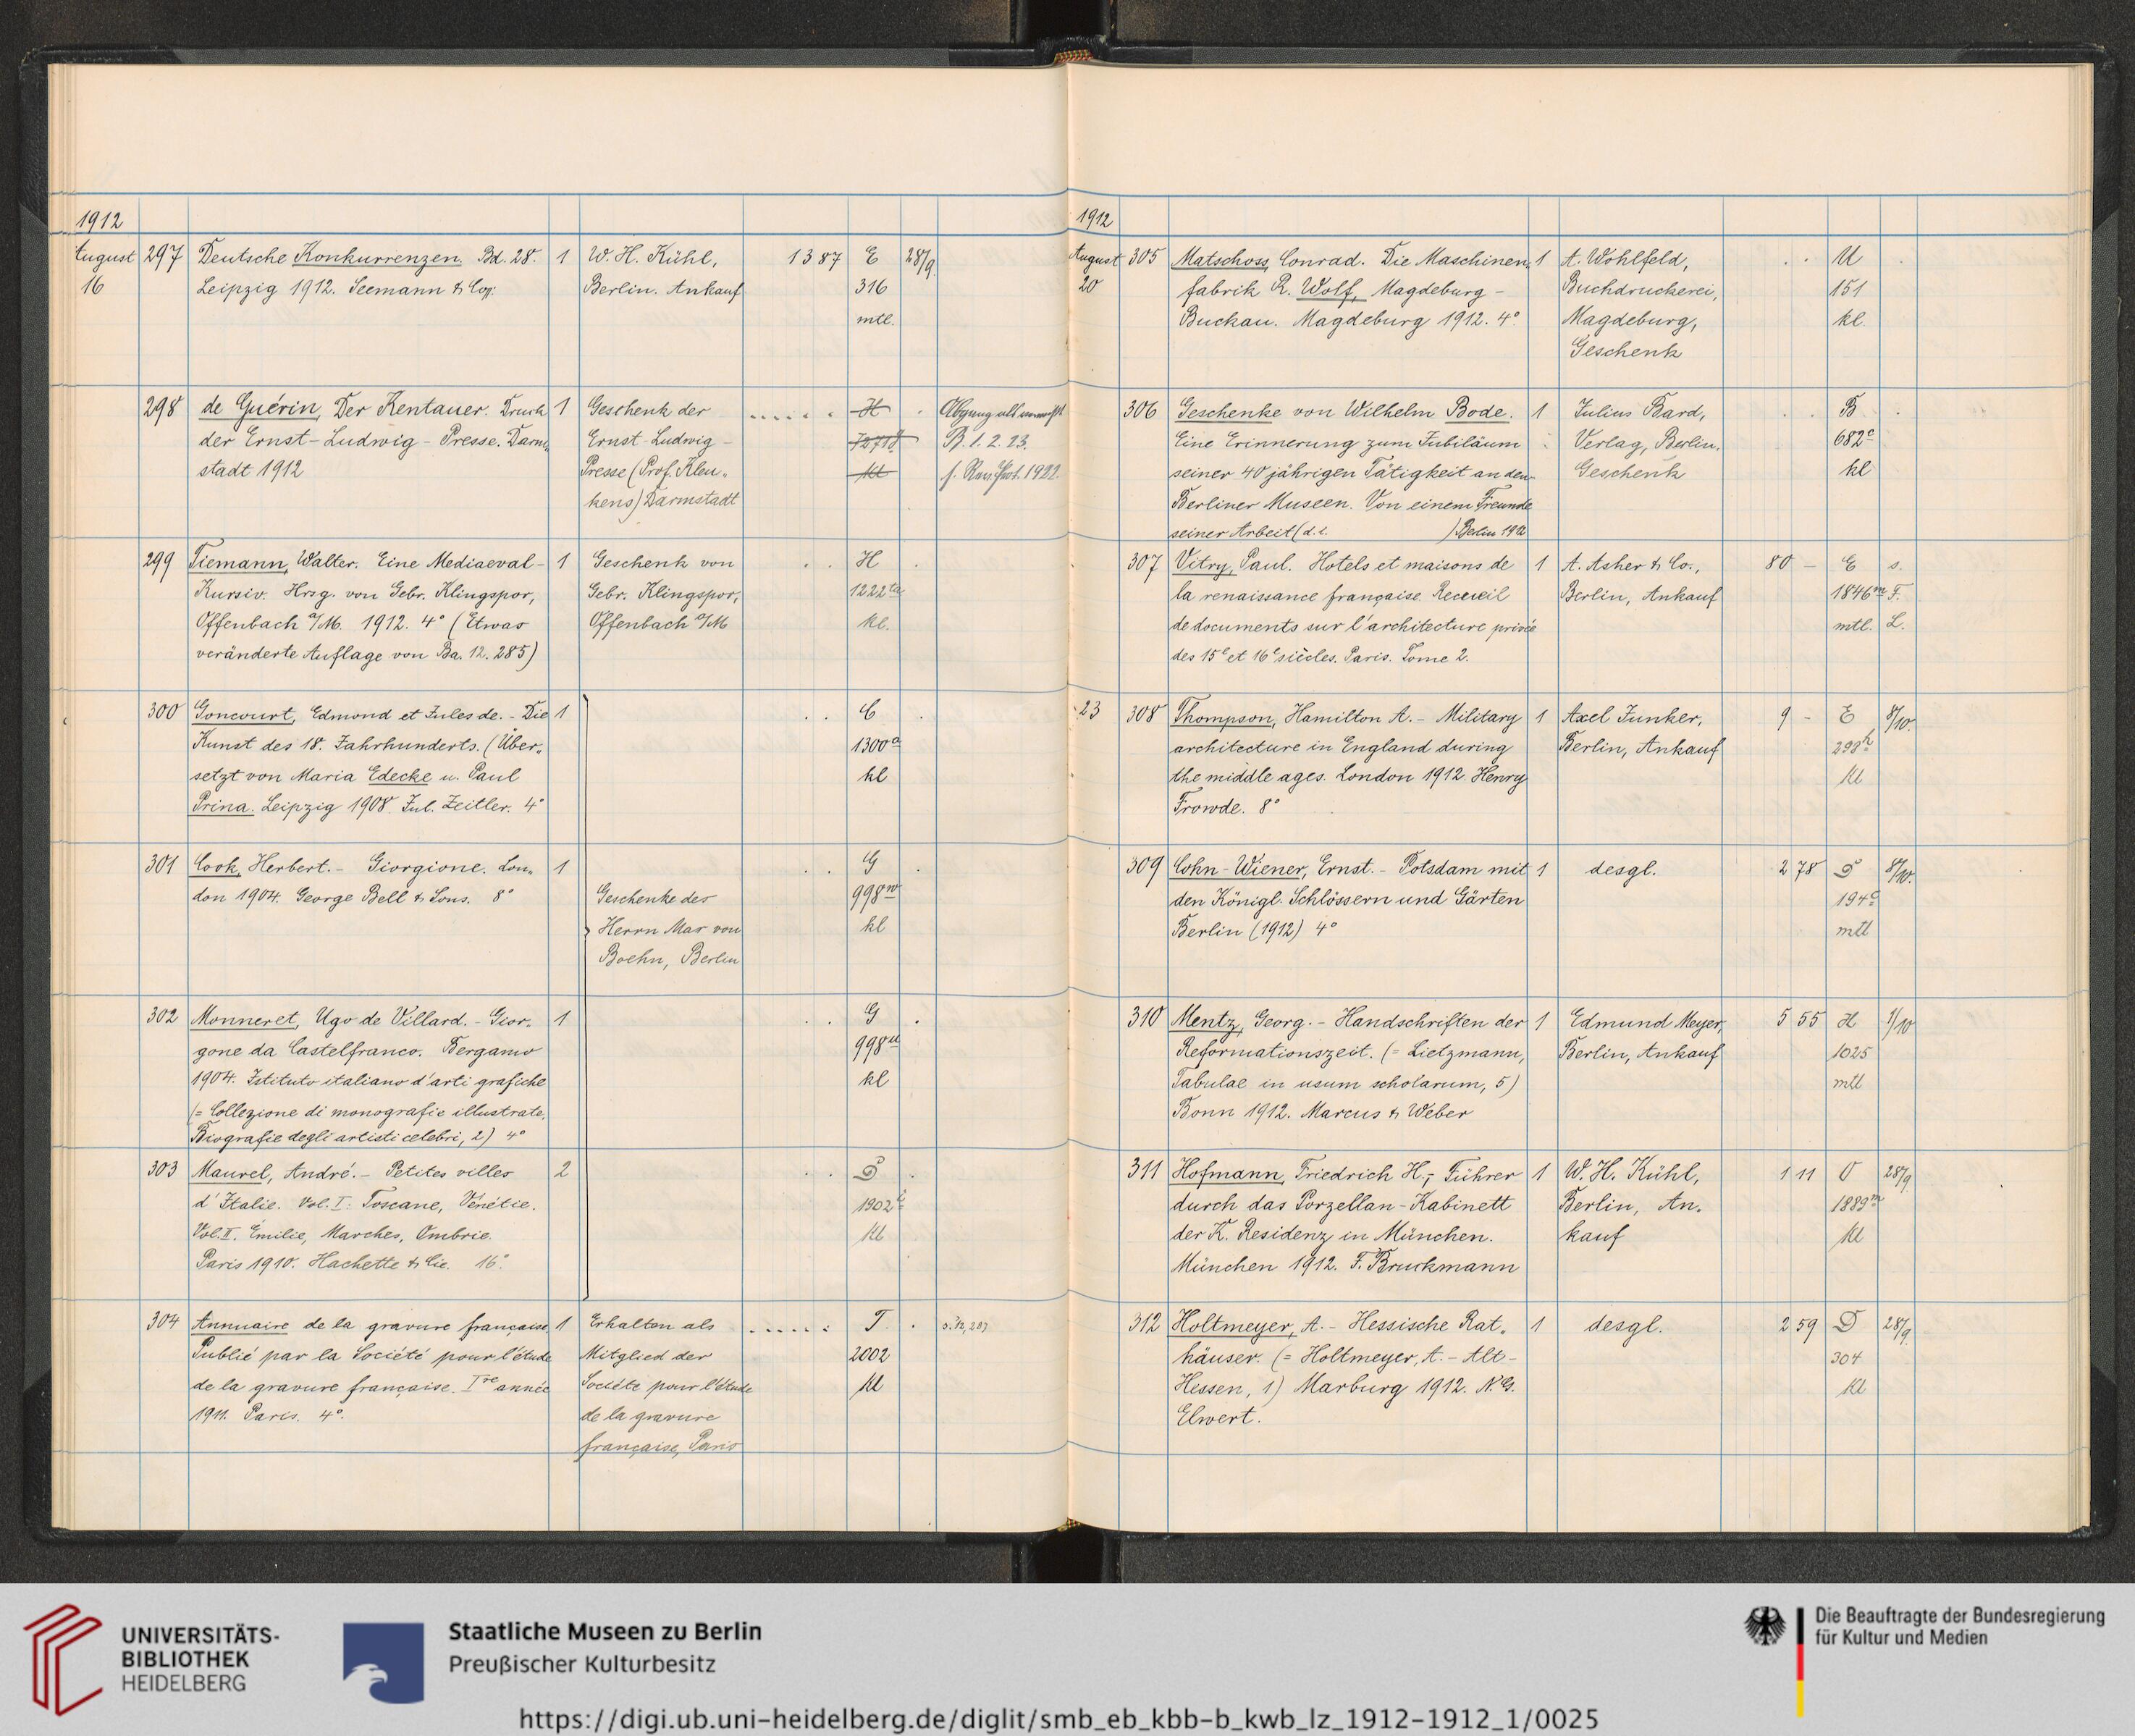 1912
August 297 Deutsche Konkurrenzen Bd. 28. 1 W. H. Kühl, 13 87 E 28/9.
16 Leipzig 1912. Seemann & Co. Berlin. Ankauf 316
mtl.
298 de Guérin, Der Kentauer. Druck 1 Geschenk der H
der Ernst-Ludwig-Presse. Darm- Ernst-Ludwig- B. 1. 2. 23.
stadt 1912 Presse (Prof. Kleu- kl
kens) Darmstadt
299 Tiemann, Walter. Eine Mediaeval- 1 Geschenk von H
Kursiv. Hrsg. von Gebr. Klingspor, Gebr. Klingspor, 1222ta
Offenbach a/M. 1912. 4° (Etwas Offenbach a/M kl.
veränderte Auflage von Ba. 12. 285)
300 Goncourt, Edmond et Jules de. - Die 1 C
Kunst des 18. Jahrhunderts. (Über- 1300a
setzt von Maria Edecke u. Paul kl
Prina. Leipzig 1908. Jul. Zeitler. 4°
301 Cook, Herbert. - Giorgione. Lon- 1 G
don 1904. George Bell & Sons. 8° Geschenke des 998w
Herrn Max von kl
Boehn, Berlin
302 Monneret, Ugo de Villard. - Gior- 1 G
gone da Castelfranco. Bergamo 998u
1904. Istituto italiano d'arti grafiche kl
(= Collezione di monografie illustrate.
Biografie degli artisti celebri, 2) 4°
303 Maurel, André. - Petites villes 2 D
d'Italie. Vol. I: Toscane, Vénétie. 1902
Vol. II. Émilie, Marches, Ombrie. kl
Paris 1910. Hachette & Cie. 16°.
304 Annuaire de la gravure française 1 Erhalten als T
Publié par la Société pour l'étude Mitglied der 2002
de la gravure française. Ire année Société pour l'étude kl
1911. Paris. 4°. de la gravure
française, Paris
1912
August 305 Matschoss, Conrad. Die Maschinen- 1 A. Wohlfeld, U
20 fabrik R. Wolf, Magdeburg- Buchdruckerei, 151
Buckau. Magdeburg 1912. 4°. Magdeburg, kl.
Geschenk
306 Geschenke von Wilhelm Bode. 1 Julius Bard, B
Eine Erinnerung zum Jubiläum Verlag, Berlin. 682c
seiner 40 jährigen Tätigkeit an den Geschenk kl
Berliner Museen. Von einem Freunde
seiner Arbeit (d. i. ) Berlin 1912
307 Vitry, Paul. Hotels et maisons de 1 A. Asher & Co., 80 - E s.
la renaissance française. Recueil Berlin, Ankauf 1846m F.
de documents sur l'architecture privée mtl. L.
des 15e et 16e siècles. Paris. Tome 2.
23 308 Thompson, Hamilton A. - Military 1 Axel Junker, 9 - E 8/10.
architecture in England during Berlin, Ankauf 298h
the middle ages. London 1912. Henry kl
Frowde. 8°
309 Cohn-Wiener, Ernst. - Potsdam mit 1 desgl. 2 78 D 8/10.
den Königl. Schlössern und Gärten 194c
Berlin (1912) 4° mtl
310 Mentz, Georg. - Handschriften der 1 Edmund Meyer, 5 55 H 1/10
Reformationszeit. (= Lietzmann, Berlin, Ankauf 1025
Tabulae in usum scholarum, 5) mtl
Bonn 1912. Marcus & Weber
311 Hofmann, Friedrich H., - Führer 1 W. H. Kühl, 1 11 O 28/9.
durch das Porzellan-Kabinett Berlin, An- 1889m
der K. Residenz in München. kauf kl
München 1912. F. Bruckmann
312 Holtmeyer, A. - Hessische Rat- 1 desgl. 2 59 D 28/9.
häuser. (= Holtmeyer, A. - Alt- 304
Hessen, 1) Marburg 1912. N. G. kl
Elwert.
UNIVERSITÄTS-
BIBLIOTHEK
HEIDELBERG
Staatliche Museen zu Berlin
Preußischer Kulturbesitz
Die Beauftragte der Bundesregierung
für Kultur und Medien
https://digi.ub.uni-heidelberg.de/diglit/smb_eb_kbb-b_kwb_lz_1912-1912_1/0025